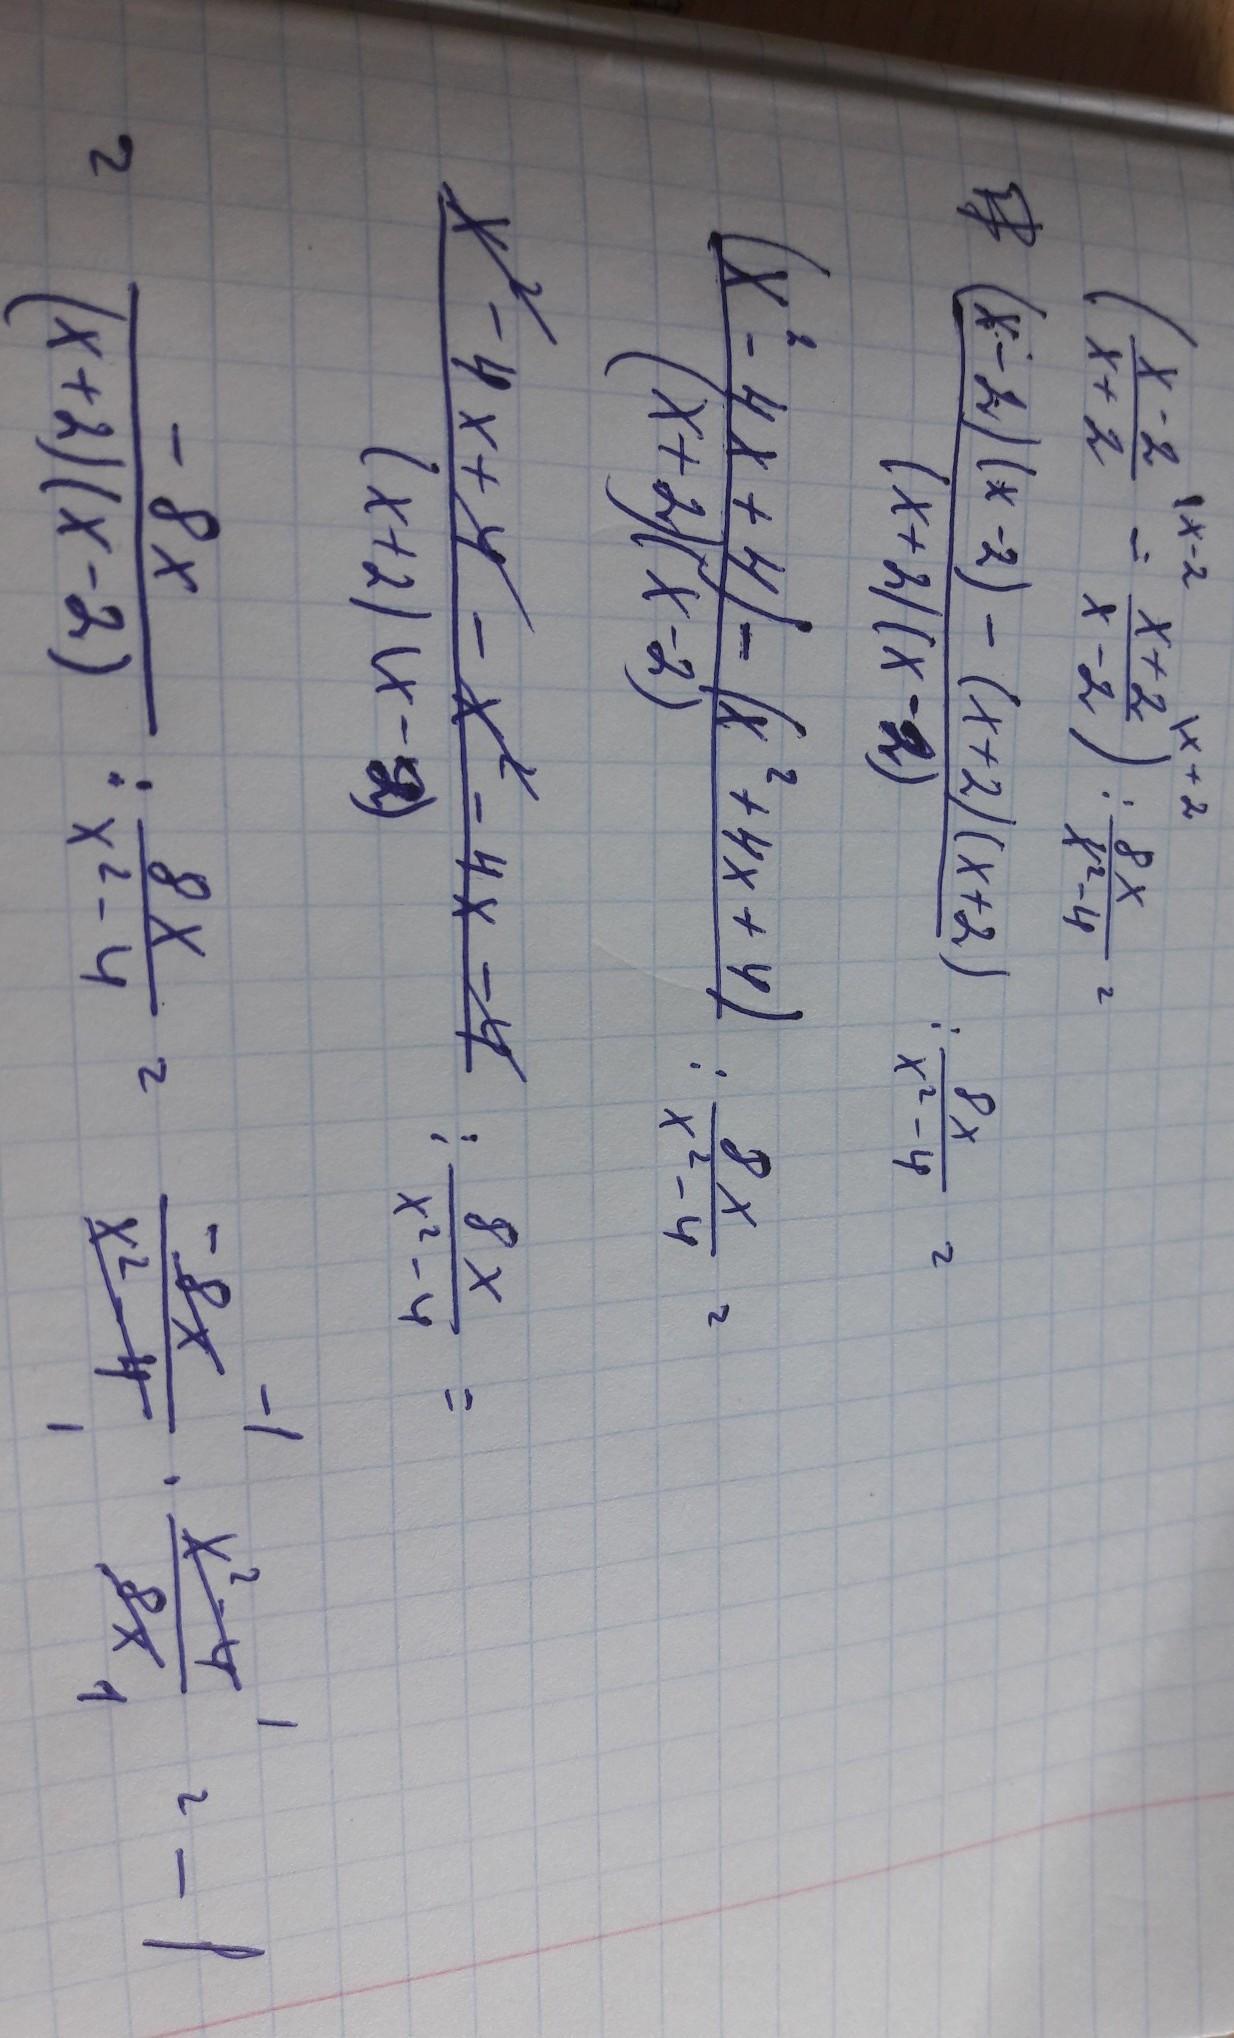 ( (x-2)/(x+2) \x-2 = (x+2)/(x-2) \x+2 ) : 8x/(x²-4) =
((x-2)(x-2) - (x+2)(x+2))/((x+2)(x-2)) : 8x/(x²-4) =
((x²-4x+4) - (x²+4x+4))/((x+2)(x-2)) : 8x/(x²-4) =
(x²-4x+4-x²-4x-4)/((x+2)(x-2)) : 8x/(x²-4) =
= -8x/((x+2)(x-2)) : 8x/(x²-4) = -8x -1/(x²-4) 1 · (x²-4) 1/8x 1 = -1